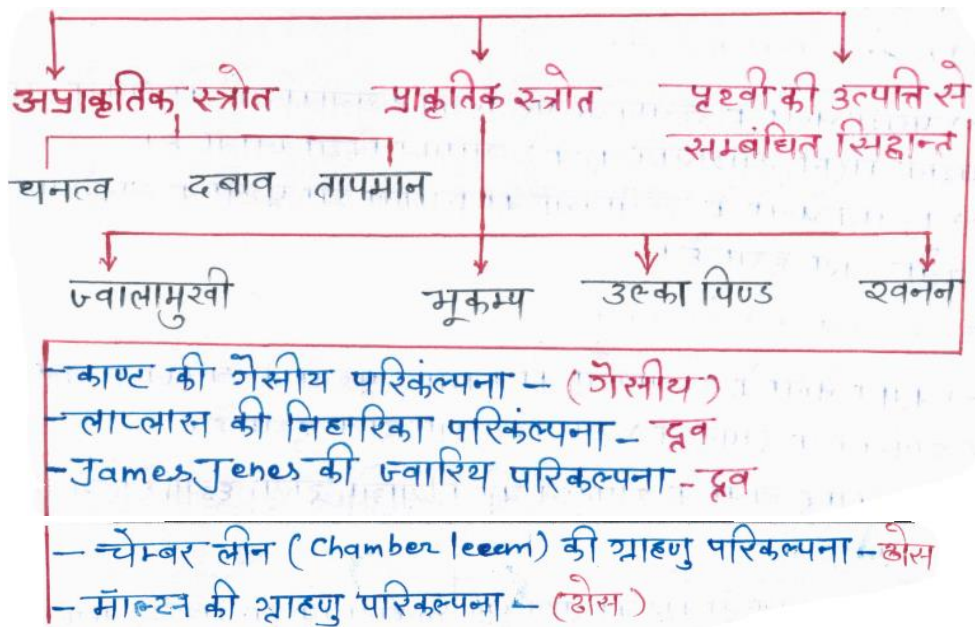 अप्राकृतिक स्त्रोत प्राकृतिक स्त्रोत पृथ्वी की उत्पत्ति से
सम्बंधित सिद्धान्त
धनत्व दबाव तापमान
ज्वालामुखी भूकम्प उल्का पिण्ड खनन
- काण्ट की गैसीय परिकंल्पना - (गैसीय)
- लाप्लास की निहारिका परिकंल्पना - द्रव
- James Jenes की ज्वारिय परिकल्पना - द्रव
- चेम्बर लीन (Chamber leeem) की ग्राहणु परिकल्पना - ठोस
- मॉल्टन की ग्राहणु परिकल्पना - (ठोस)